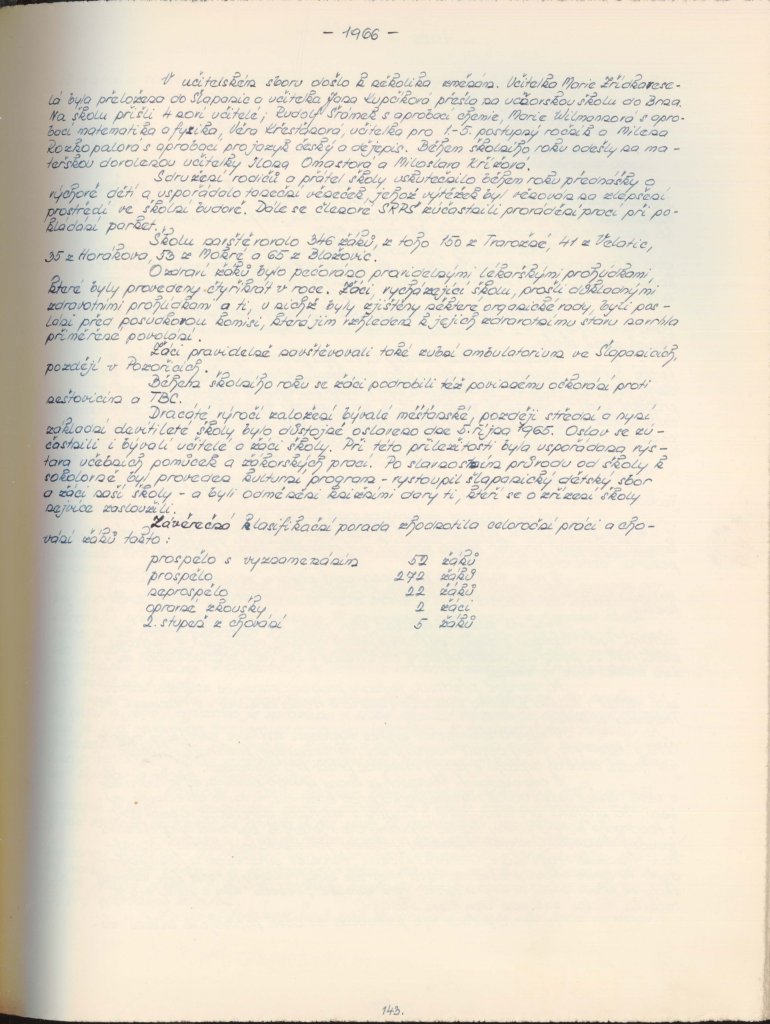 - 1966 -
V učitelském sboru došlo k několika změnám. Učitelka Marie Zřídkavese-
lá byla přeložena do Šlapanic a učitelka Jana Kupčíková přešla na učňovskou školu do Brna.
Na školu přišli 4 noví učitelé; Rudolf Šrámek s aprobací chemie, Marie Wilmannová s apro-
bací matematika a fyzika, Věra Křesťanová, učitelka pro 1.-5. postupný ročník a Milena
Rozkopalová s aprobací pro jazyk český a dějepis. Během školního roku odešly na ma-
teřskou dovolenou učitelky Ilona Omastová a Miloslava Křížová.
Sdružení rodičů a přátel školy uskutečnilo během roku přednášky o
výchově dětí a uspořádalo taneční věneček, jehož výtěžek byl věnován na zlepšení
prostředí ve školní budově. Dále se členové SRPŠ zúčastnili provádění prací při po-
kládání parket.
Školu navštěvovalo 346 žáků, z toho 150 z Tvarožné, 41 z Velatic,
35 z Horákova, 53 z Mokré a 65 z Blažovic.
O zdraví žáků bylo pečováno pravidelnými lékařskými prohlídkami,
které byly provedeny čtyřikrát v roce. Žáci, vycházející školu, prošli důkladnými
zdravotními prohlídkami a ti, u nichž byly zjištěny některé organické vady, byli pos-
láni před posudkovou komisi, která jim vzhledem k jejich zdravotnímu stavu navrhla
přiměřené povolání.
Žáci pravidelně navštěvovali také zubní ambulatorium ve Šlapanicích,
později v Pozořicích.
Během školního roku se žáci podrobili též povinnému očkování proti
neštovicím a TBC.
Dvacáté výročí založení bývalé měšťanské, později střední a nyní
základní devítileté školy bylo důstojně oslaveno dne 5. října 1965. Oslav se zú-
častnili i bývalí učitelé a žáci školy. Při této příležitosti byla uspořádána výs-
tava učebních pomůcek a žákovských prací. Po slavnostním průvodu od školy k
sokolovně byl proveden kulturní program - vystoupil šlapanický dětský sbor
a žáci naší školy - a byli odměněni knižními dary ti, kteří se o zřízení školy
nejvíce zasloužili.
Závěrečná klasifikační porada zhodnotila celoroční práci a cho-
vání žáků takto:
prospělo s vyznamenáním 52 žáků
prospělo 272 žáků
neprospělo 22 žáků
opravné zkoušky 2 žáci
2. stupeň z chování 5 žáků
143.